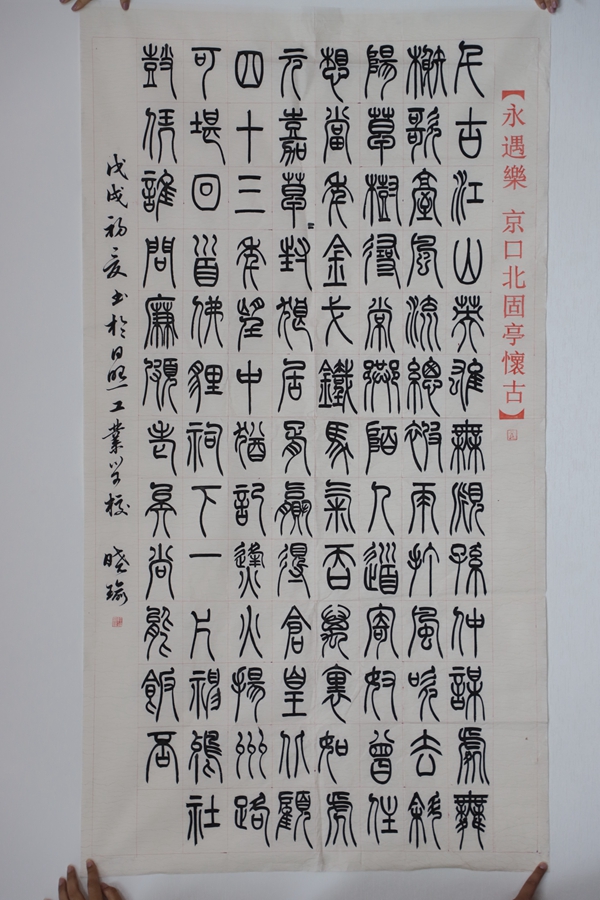 【永遇樂 京口北固亭懷古】
千古江山英雄無覓孫仲謀處舞
榭歌臺風流總被雨打風吹去斜
陽草樹尋常巷陌人道寄奴曾住
想當年金戈鐵馬氣吞萬裏如虎
元嘉草〻封狼居胥贏得倉皇北顧
四十三年望中猶記烽火揚州路
可堪回首佛貍祠下一片神鴉社
鼓憑誰問廉頗老矣尚能飯否
戊戌初夏书於日照工業学校 晓瑜